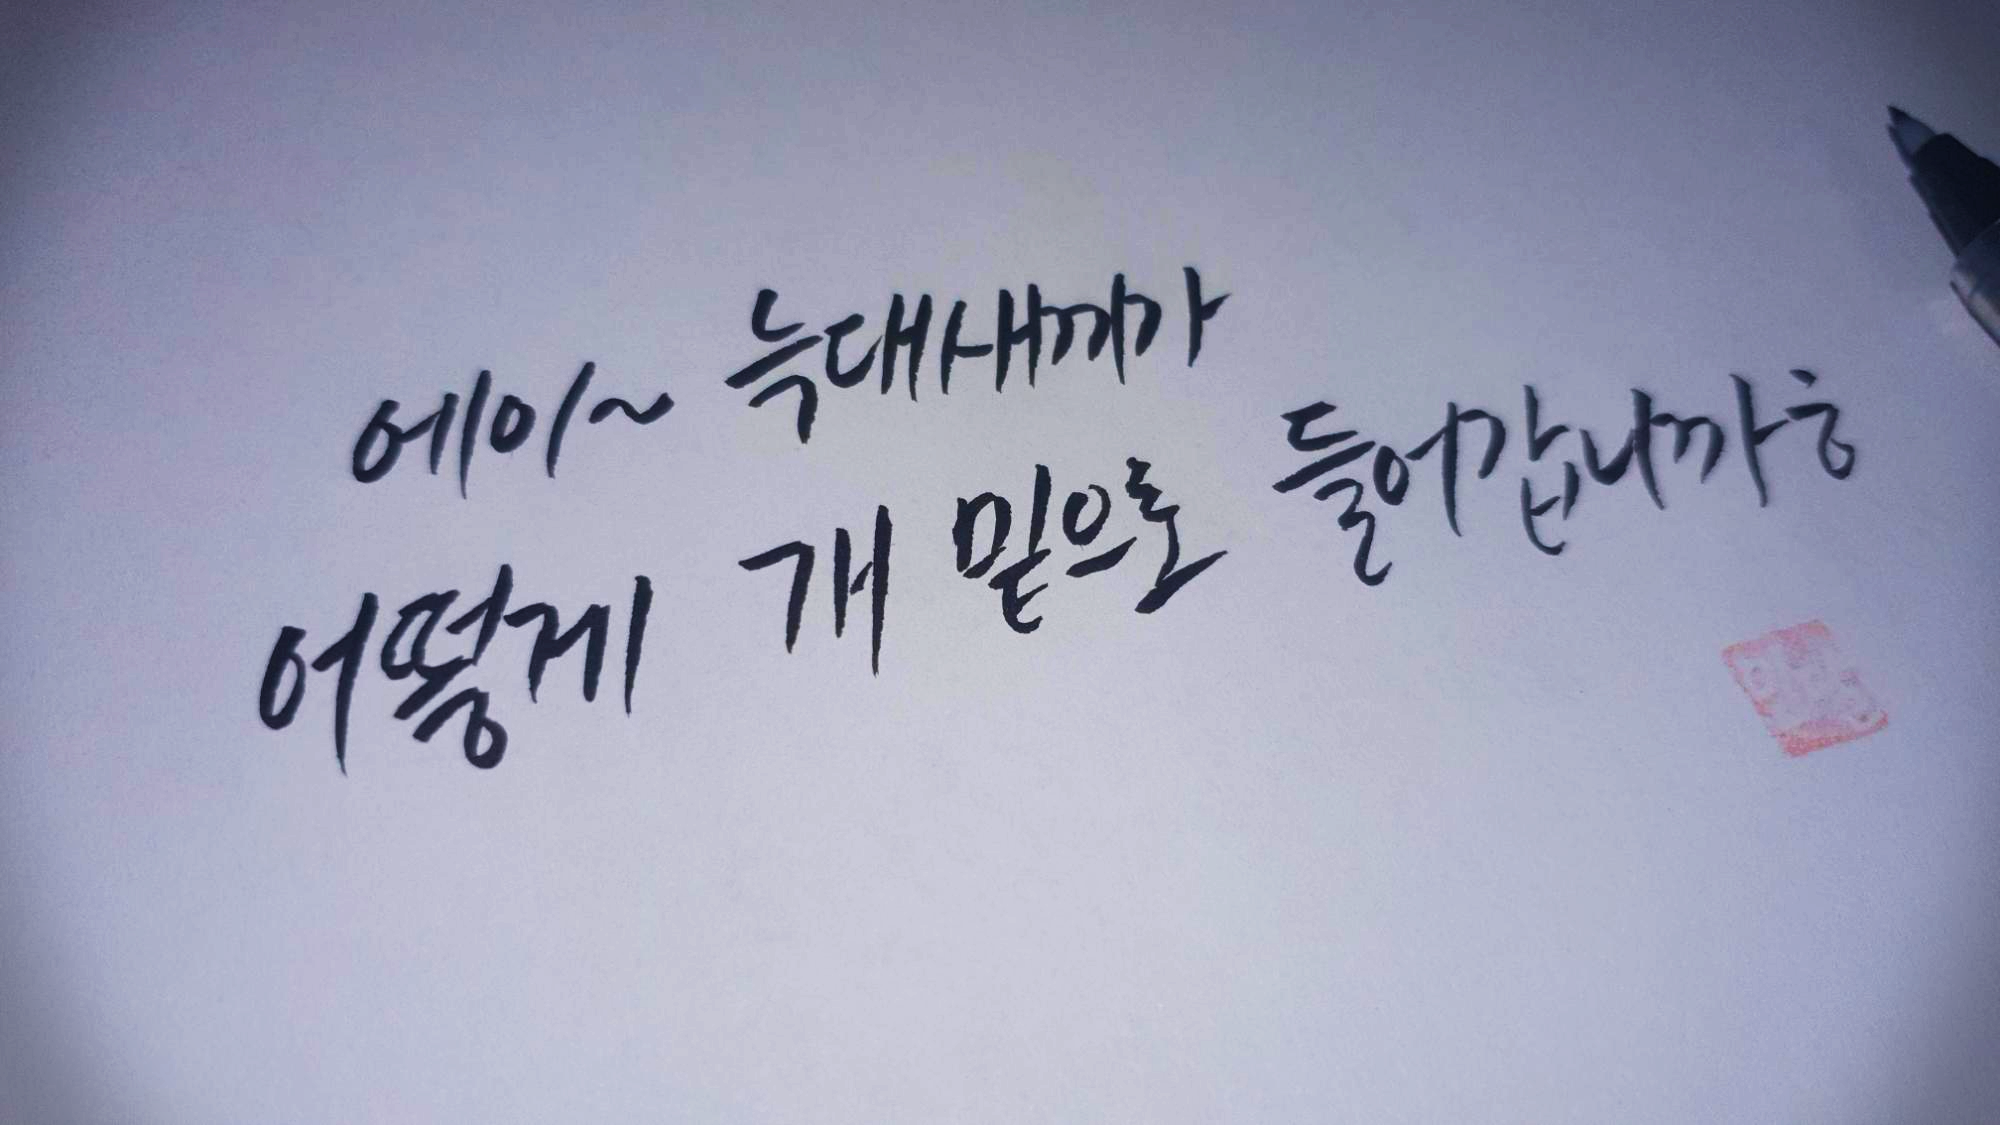 에이~ 늑대새끼가
어떻게 개 밑으로 들어갑니까ㅎ